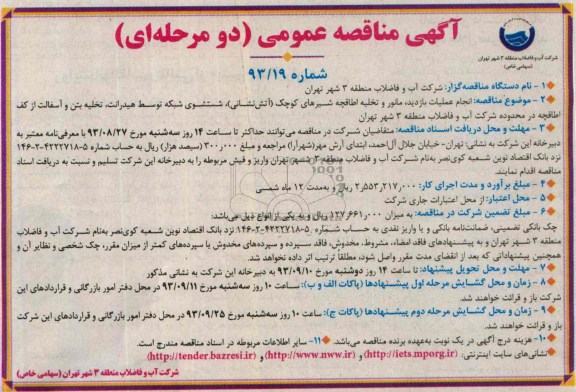 شرکت آب و فاضلاب منطقه ۳ شهر تهران
(سهامی خاص)
آگهی مناقصه عمومی (دو مرحله‌ای)
شماره ۹۳/۱۹
۱- نام دستگاه مناقصه‌گزار: شرکت آب و فاضلاب منطقه ۳ شهر تهران
۲- موضوع مناقصه: انجام عملیات بازدید، مانور و تخلیه اطاقچه شیرهای کوچک (آتش‌نشانی)، شستشوی شبکه توسط هیدرانت، تخلیه بتن و آسفالت از کف
اطاقچه در محدوده شرکت آب و فاضلاب منطقه ۳ شهر تهران
۳- مهلت و محل دریافت اسناد مناقصه: متقاضیان شرکت در مناقصه می‌توانند حداکثر تا ساعت ۱۴ روز سه‌شنبه مورخ ۹۳/۰۸/۲۷ با معرفی‌نامه معتبر به
دبیرخانه این شرکت به نشانی: تهران- خیابان جلال آل‌احمد، ابتدای آرش مهر(شهرآرا) مراجعه و مبلغ ۳۰۰٫۰۰۰ (سیصد هزار) ریال به حساب شماره ۵-۴۲۲۲۷۱۸-۲-۱۴۶
نزد بانک اقتصاد نوین شعبه کوی‌نصر به‌نام شرکت آب و فاضلاب منطقه ۳ شهر تهران واریز و فیش مربوطه را به دبیرخانه این شرکت تسلیم و نسبت به دریافت اسناد
مناقصه اقدام نمایند.
۴- مبلغ برآورد و مدت اجرای کار: ۲٫۵۵۳٫۲۱۷٫۰۰۰ ریال و به‌مدت ۱۲ ماه شمسی
۵- محل اعتبار: از محل اعتبارات جاری شرکت
۶- مبلغ تضمین شرکت در مناقصه: به میزان ۱۲۷٫۶۶۱٫۰۰۰ ریال و به یکی از انواع ذیل می‌باشد:
چک بانکی تضمینی، ضمانت‌نامه بانکی و یا واریز نقدی به حساب شماره ۵-۴۲۲۲۷۱۸-۲-۱۴۶ نزد بانک اقتصاد نوین شعبه کوی‌نصر به‌نام شرکت آب و فاضلاب
منطقه ۳ شهر تهران و به پیشنهادهای فاقد امضاء، مشروط، مخدوش، فاقد سپرده و سپرده‌های مخدوش یا سپرده‌های کمتر از میزان مقرر، چک شخصی و نظایر آن و
همچنین پیشنهاداتی که بعد از انقضای مدت مقرر واصل شود، مطلقاً ترتیب اثر داده نخواهد شد.
۷- مهلت و محل تحویل پیشنهاد: تا ساعت ۱۴ روز دوشنبه مورخ ۹۳/۰۹/۱۰ به دبیرخانه این شرکت به نشانی مذکور
۸- زمان و محل گشایش مرحله اول پیشنهادها (پاکات الف و ب): ساعت ۱۰ روز سه‌شنبه مورخ ۹۳/۰۹/۱۱ در محل دفتر امور بازرگانی و قراردادهای این
شرکت باز و قرائت خواهند شد.
۹- زمان و محل گشایش مرحله دوم پیشنهادها (پاکات ج): ساعت ۱۰ روز سه‌شنبه مورخ ۹۳/۰۹/۲۵ در محل دفتر امور بازرگانی و قراردادهای این شرکت
باز و قرائت خواهند شد.
۱۰- هزینه درج آگهی در یک نوبت به‌عهده برنده مناقصه می‌باشد. ۱۱- سایر اطلاعات مربوطه در اسناد مناقصه مندرج است.
نشانی‌های سایت اینترنتی: (http://iets.mporg.ir) و (http://www.nww.ir) و (http://tender.bazresi.ir)
شرکت آب و فاضلاب منطقه ۳ شهر تهران (سهامی خاص)